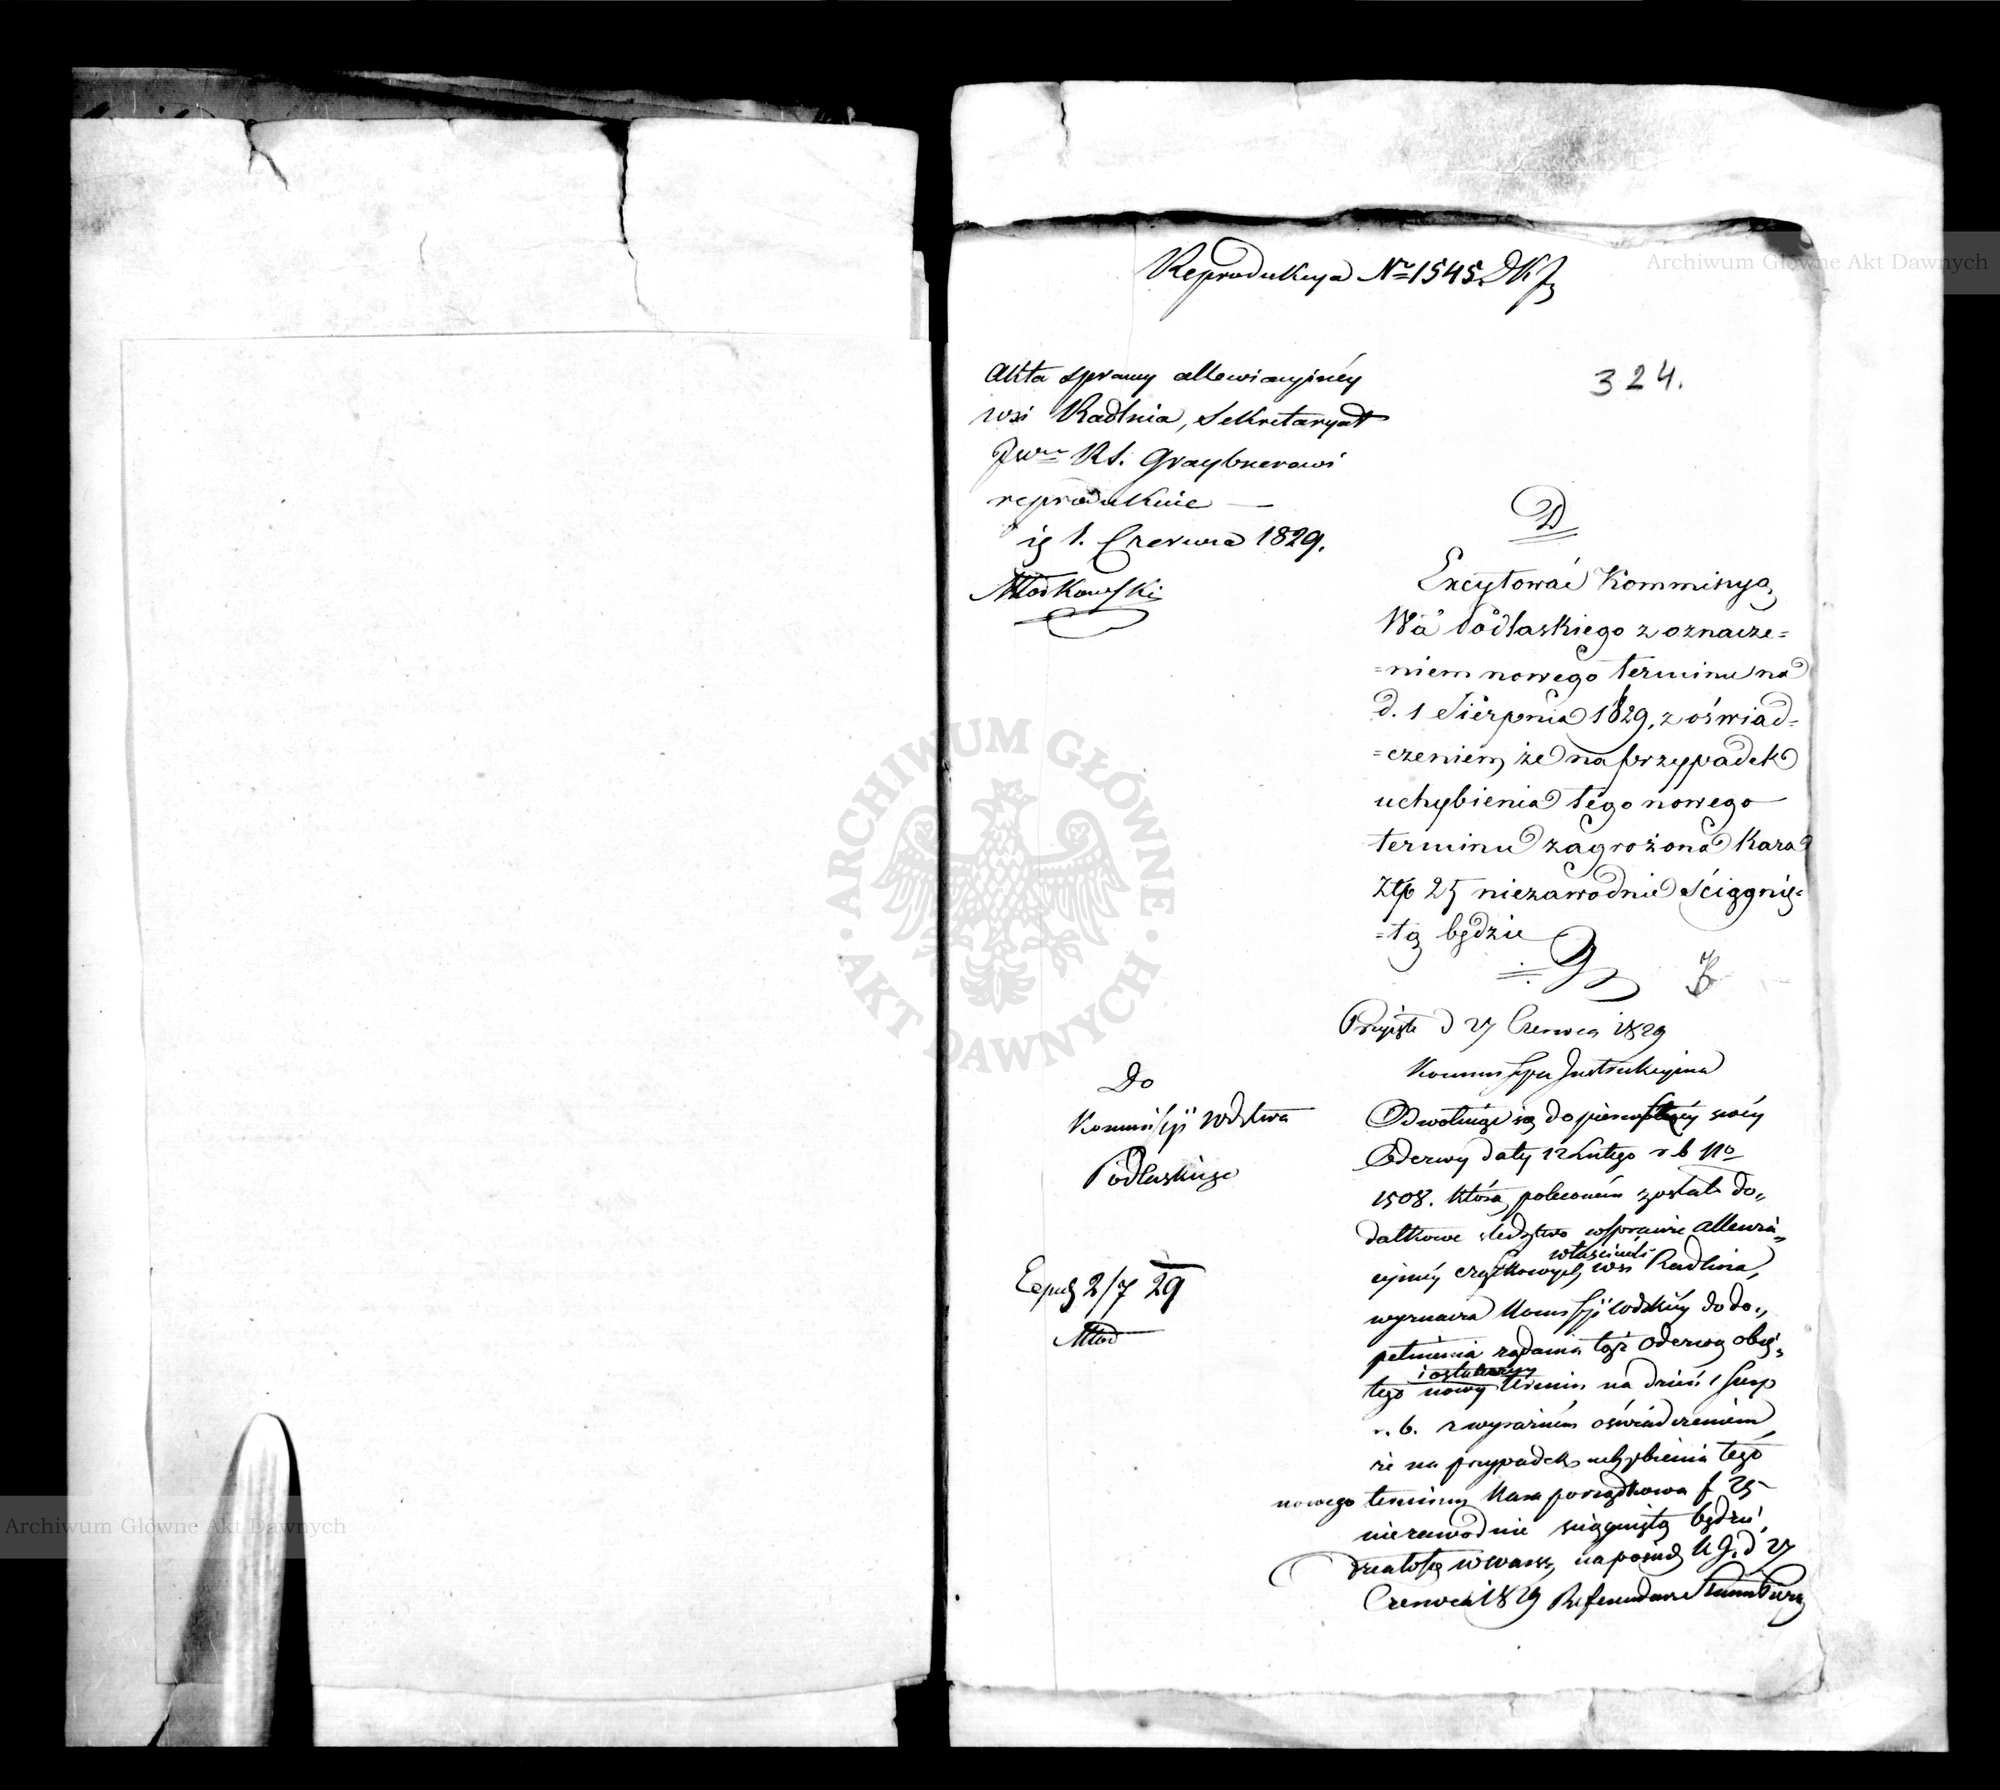 Reprodukcya Nr 1545 DKJ
324.
Akta sprawy allewiacyinéy
wsi Radlnia, Sekretaryat
JWmu RS. Graybnerowi
reprodukuie —
ię 1. Czerwca 1829.
Młodkowski
D
Excytować Kommissyą
Wa Podlaskiego z oznacze=
=niem nowego terminu na
d. 1 Sierpnia 1829, z oświad=
=czeniem, że na przypadek
uchybienia tego nowego
terminu zagrożona kara
Złp 25 niezawodnie ściągnię=
=tą będzie
Przyięte d 27 Czerwca 1829
Kommissya Instrukcyina
Do
Kommissyi Wdztwa
Podlaskiego
Odwołuiąc się do swoéy
Odezwy daty 12 Lutego r b No
1508. którą poleconém zostało do„
datkowe śledztwo w sprawie allewia„
cyinéy cząstkowych właścicieli wsi Radlina,
wyznacza Kommissyi Wdzkiéy do do„
pełnienia żądania tąż Odezwą obię„
tego nowy i ostateczny termin na dzień 1 Sierp
r. b. z wyraźném oświadczeniem
że na przypadek uchybienia tego
nowego terminu kara porządkowa f 25
niezawodnie ściągniętą będzie,
Działo się w Warsz, na posied K J. d 27
Czerwca 1829 Referendarz
Exped 2/7 29
Młod
ARCHIWUM GŁÓWNE
AKT DAWNYCH
Archiwum Główne Akt Dawnych
Archiwum Główne Akt Dawnych